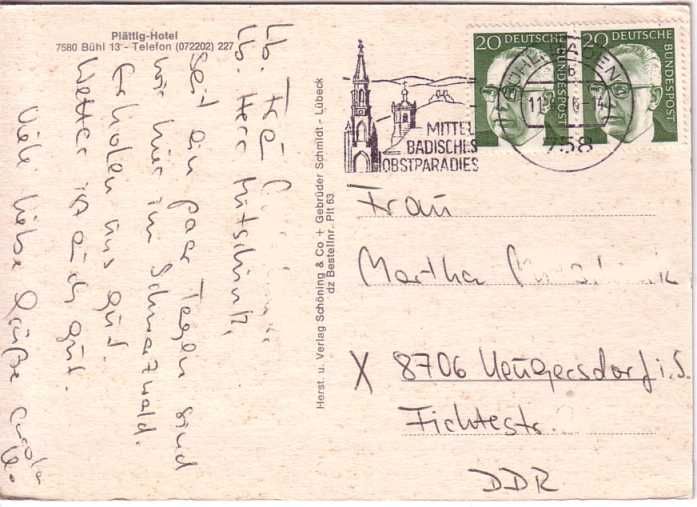 Plättig-Hotel
7580 Bühl 13 - Telefon (072202) 227
Lb. Frau
Lb. Herr
seit ein paar Tagen sind
wir hier im Schwarzwald.
Erholen uns gut.
Wetter ist auch gut.
Viele liebe Grüße
Herst. u. Verlag Schöning & Co + Gebrüder Schmidt - Lübeck
dz Bestellnr. Plt 63
MITTEL
BADISCHES
OBSTPARADIES
20 DEUTSCHE
BUNDESPOST
20 DEUTSCHE
BUNDESPOST
758
Frau
Martha
X 8706 Neugersdorf i. S.
Fichtestr.
DDR